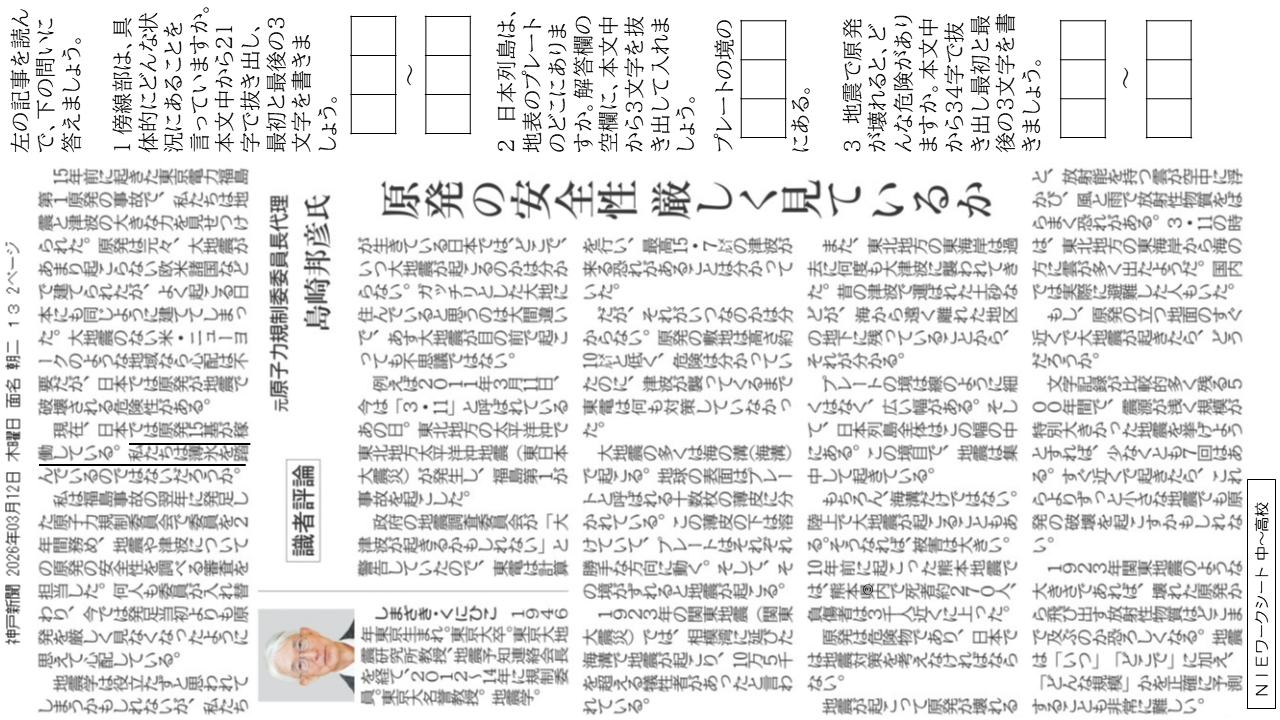 左の記事を読ん
で、下の問いに
答えましょう。
1 傍線部は、具
体的にどんな状
況にあることを
言っていますか。
本文中から21
字で抜き出し、
最初と最後の3
文字を書きま
しょう。
～
2 日本列島は、
地表のプレート
のどこにありま
すか。解答欄の
空欄に、本文中
から3文字を抜
き出して入れま
しょう。
プレートの境の
にある。
3 地震で原発
が壊れると、ど
んな危険があり
ますか。本文中
から34字で抜
き出し最初と最
後の3文字を書
きましょう。
～
神戸新聞 2026年03月12日 木曜日 面名 朝二 13 2ページ
原発の安全性 厳しく見ているか
元原子力規制委委員長代理
島崎邦彦氏
識者評論
15年前に起きた東京電力福島
第1原発の事故で、私たちは地
震と津波の大きな力を見せつけ
られた。原発は元々、大地震が
あまり起こらない欧米諸国など
で建てられたが、よく起こる日
本にも同じように建ててしまっ
た。大地震のない米・ニューヨ
ークのような地域なら心配は不
要だが、日本では原発が地震で
破壊される危険性がある。
現在、日本では原発15基が稼
働している。私たちは薄氷を踏
んでいるのではないだろうか。
私は福島事故の翌年に発足し
た原子力規制委員会で委員を2
年間務め、地震や津波について
の原発の安全性を調べる審査を
担当した。何人も委員が入れ替
わり、今では発足当初よりも原
発を厳しく見なくなったように
思えて心配している。
地震学は役立たずと思われて
しまうかもしれないが、私たち
が生きている日本では、どこで、
いつ大地震が起こるのかは分か
らない。ガッチリとした大地に
住んでいると思うのは大間違い
で、あす大地震が目の前で起こ
っても不思議ではない。
例えば2011年3月11日、
今は「3・11」と呼ばれている
あの日。東北地方の太平洋沖で
東北地方太平洋沖地震(東日本
大震災)が発生し、福島第1が
事故を起こした。
政府の地震調査委員会が「大
津波が起きるかもしれない」と
警告していたので、東電は計算
を行い、最高15・7㍍の津波が
来る恐れがあることは分かって
いた。
だが、それがいつなのかは分
からない。原発の敷地は高さ約
10㍍と低く、危険は分かってい
たのに、津波が襲ってくるまで
東電は何も対策していなかっ
た。
大地震の多くは海の溝(海溝)
で起こる。地球の表面はプレー
トと呼ばれる十数枚の薄皮に分
かれている。この薄皮の下は溶
けていて、プレートはそれぞれ
勝手な方向に動く。そして、そ
の境がずれると地震が起こる。
1923年の関東地震(関東
大震災)では、相模湾に延びた
海溝で地震が起こり、10万5千
を超える犠牲者があったと言わ
れている。
また、東北地方の東海岸は過
去に何度も大津波に襲われてき
た。昔の津波で運ばれた土砂な
どが、海から遠く離れた地区
の地下に残っていることから、
それが分かる。
プレートの境は線のように細
くはなく、広い幅がある。そし
て、日本列島全体はこの幅の中
にある。この境目で、地震は集
中して起きている。
もちろん、海溝だけではない。
陸上で大地震が起こることもあ
る。そうなれば、被害は大きい。
10年前に起こった熊本地震で
は熊本県内で死者約270人、
負傷者は3千人近くに上った。
原発は危険物であり、日本で
は地震対策を考えなければなら
ない。
地震が起こって原発が壊れる
と、放射能を持つ雲が空中に浮
かび、風と雨で放射性物質をば
らまく恐れがある。3・11の時
は、東北地方の東海岸から海の
方に雲が多く出たようだ。国内
では実際に避難した人もいた。
もし、原発の立つ地面のすぐ
近くで大地震が起きたら、どう
だろうか。
文字記録が比較的多く残る5
00年間で、震源が浅く規模が
特別大きかった地震を挙げよう
とすれば、少なくとも7回はあ
る。すぐ近くで起きたら、これ
らよりずっと小さな地震でも原
発の破壊を起こすかもしれな
い。
1923年関東地震のような
大きさであれば、壊れた原発か
ら飛び出す放射性物質はどこま
で及ぶのか恐ろしくなる。地震
は「いつ」「どこで」に加え、
「どんな規模」かを正確に予測
することも非常に難しい。
しまざき・くにひこ 1946
年東京生まれ。東京大卒。東京大地
震研究所教授、地震予知連絡会長
を経て、2012～14年に規制委
員。東京大名誉教授。地震学。
NIEワークシート 中～高校